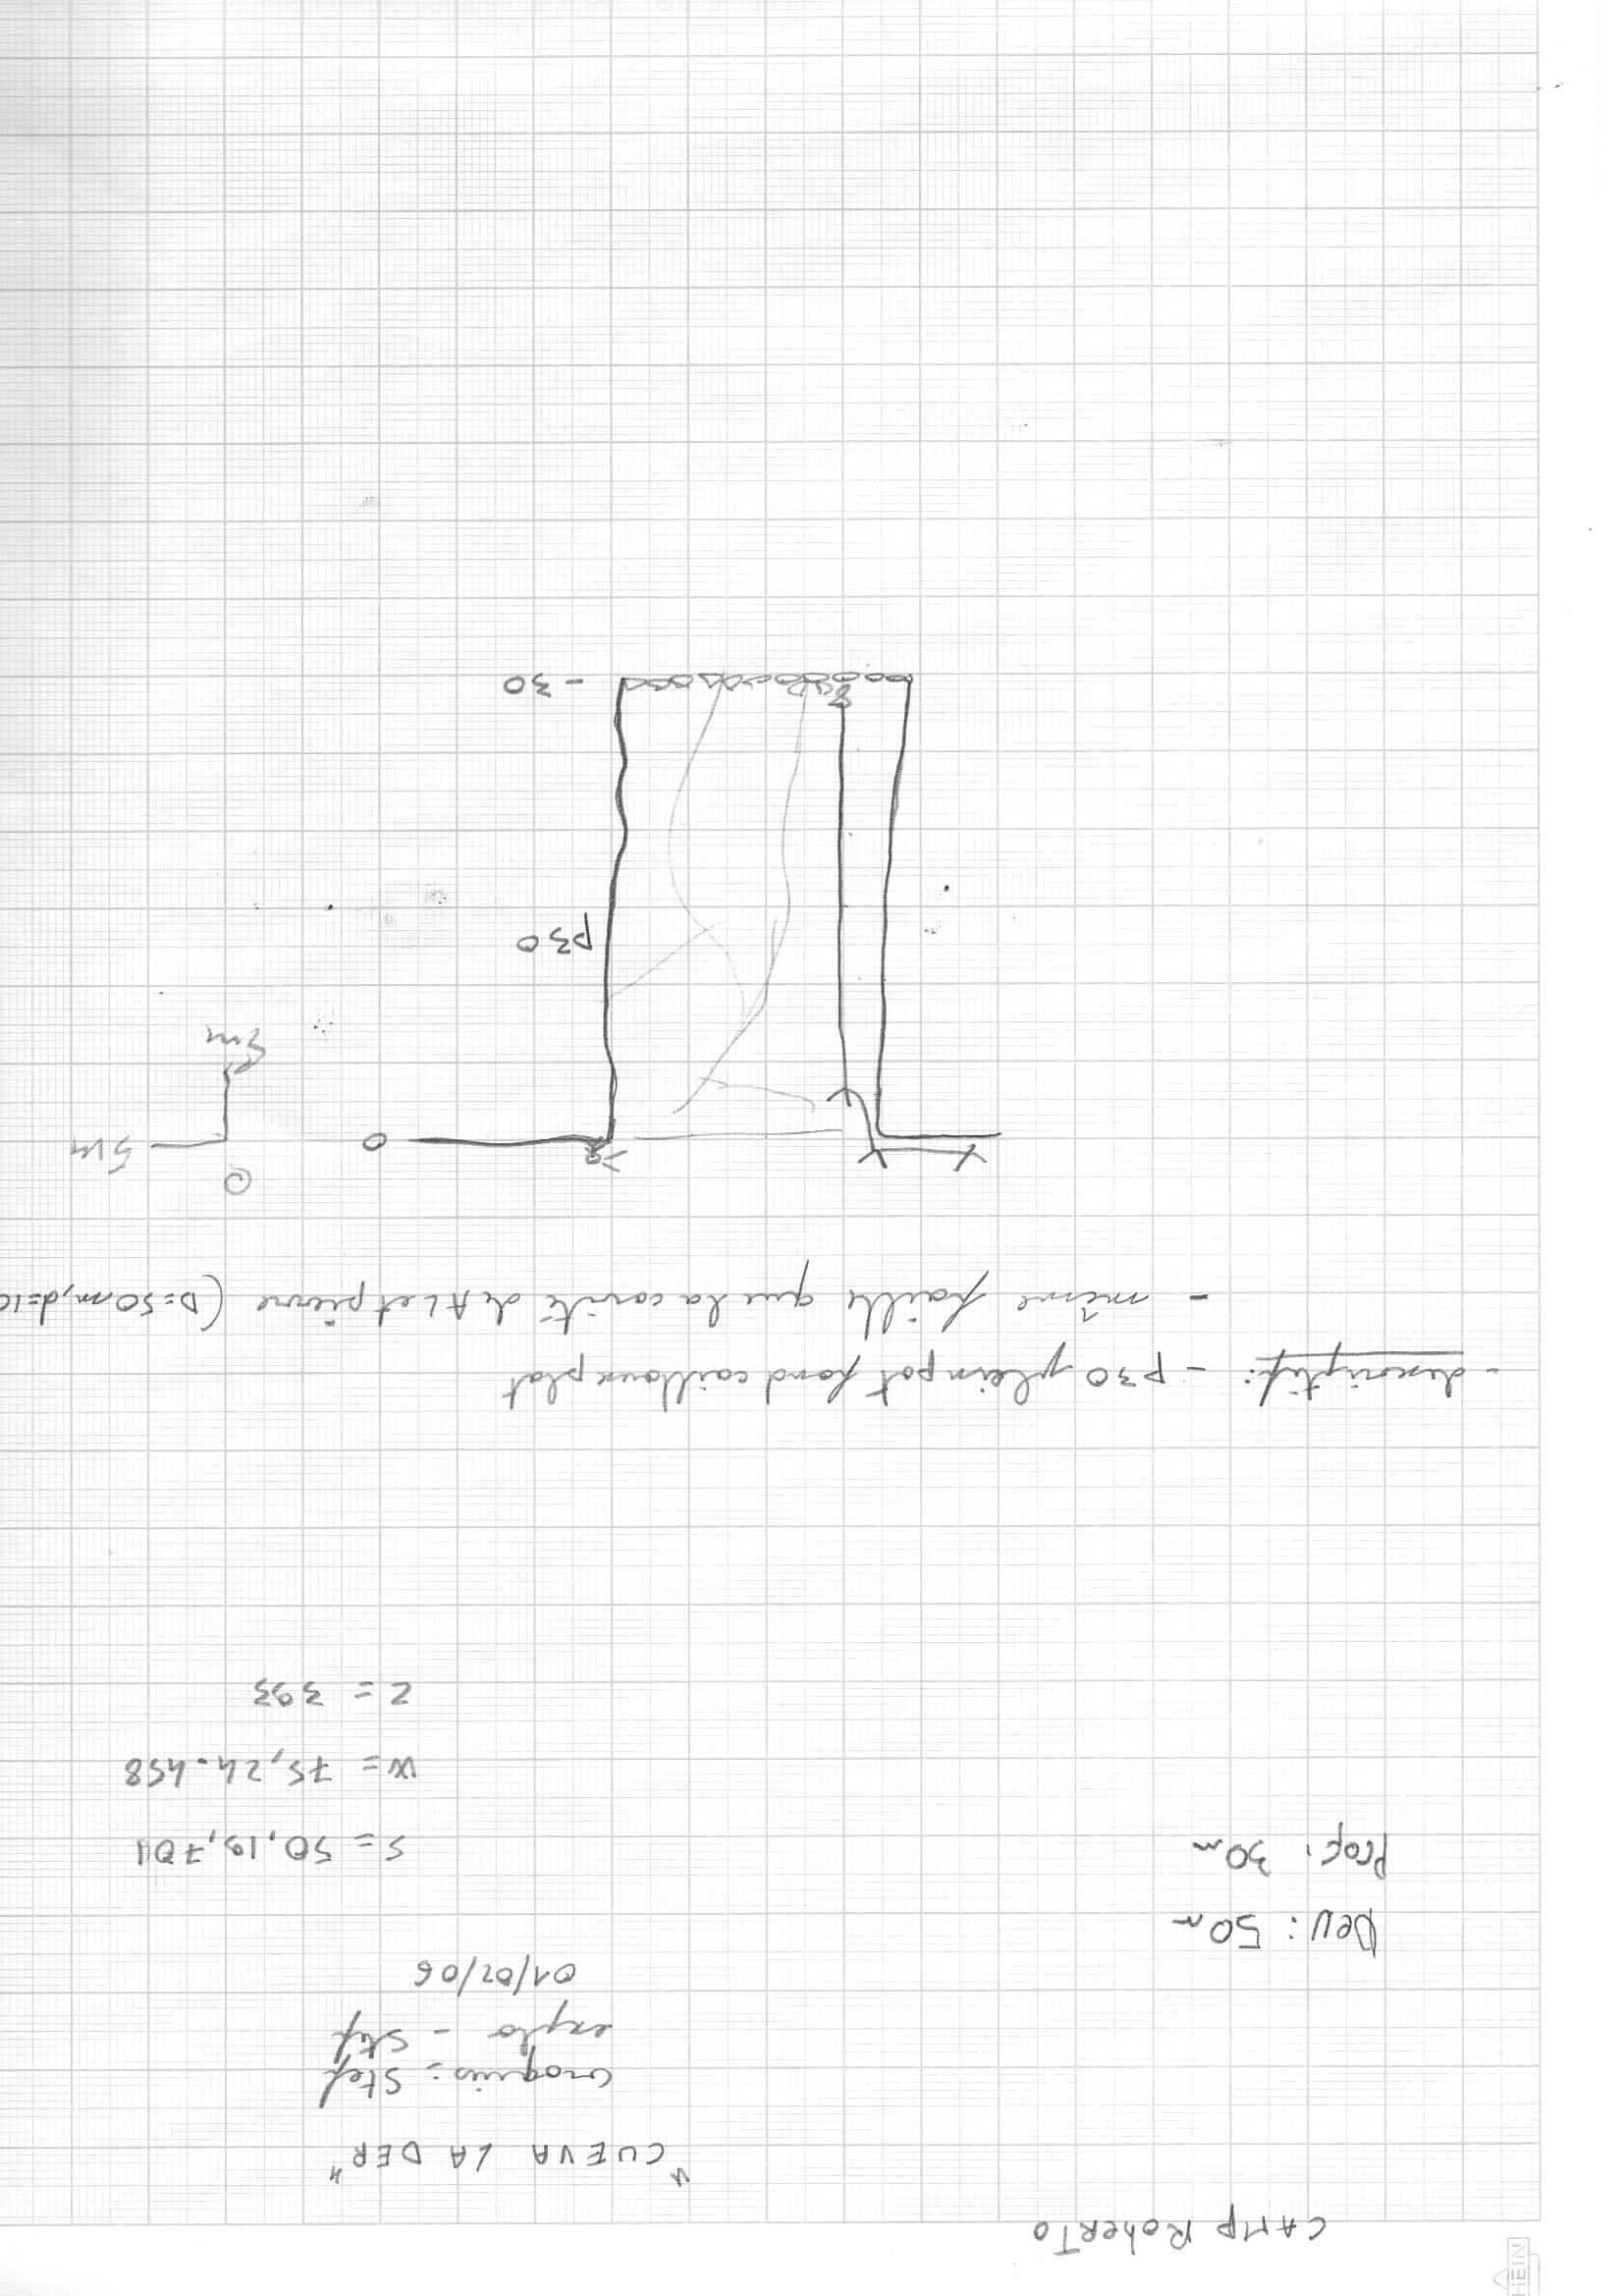 CAMP ROBERTO
"CUEVA LA DER"
croquis = Stef
explo - Stef
01/02/06
Dev : 50m
Prof. 30m
S = 50,19,704
W = 75,24.458
Z = 393
- descriptif: - p30 plein pot fond cailloux plat
- même faille que la cavité de AL et pierre (D=50m, d=10
0
5m
5m
0
p30
- 30
HEIN